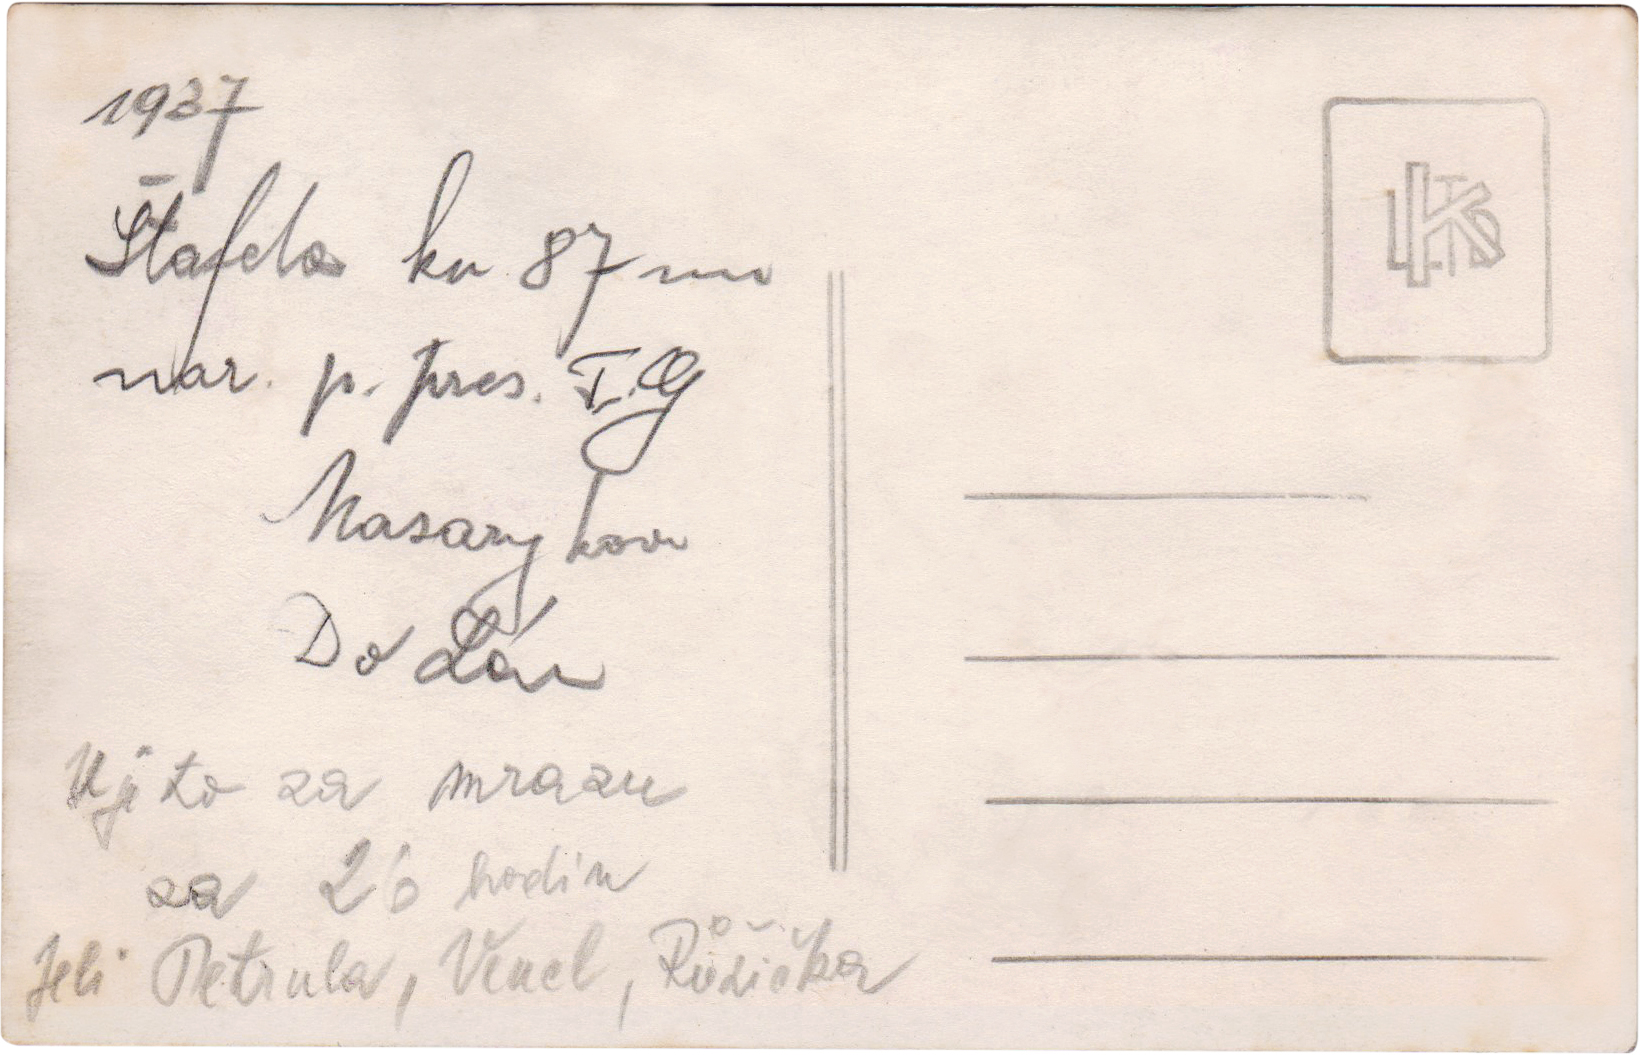 1937
Štafela ku 87mu
nar. p. pres. T.G
Masarykovi
Do Lán
Ujeto za mrazu
za 26 hodin
Jeli Petrula, Vencl, Růžička